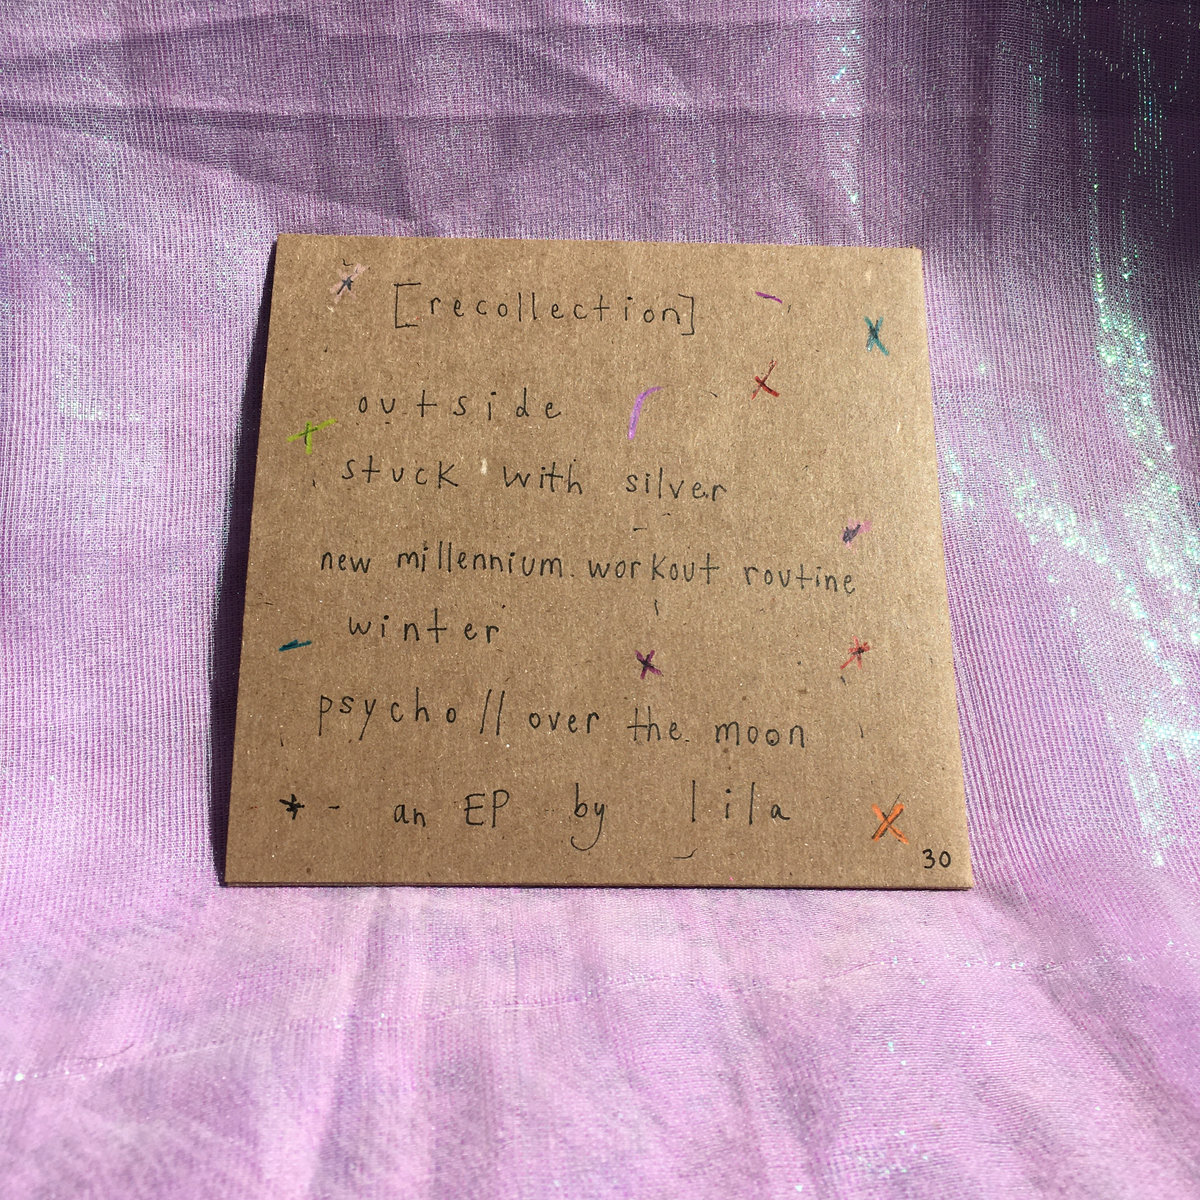 [recollection]
outside
stuck with silver
new millennium workout routine
winter
psycho // over the moon
an EP by lila
30